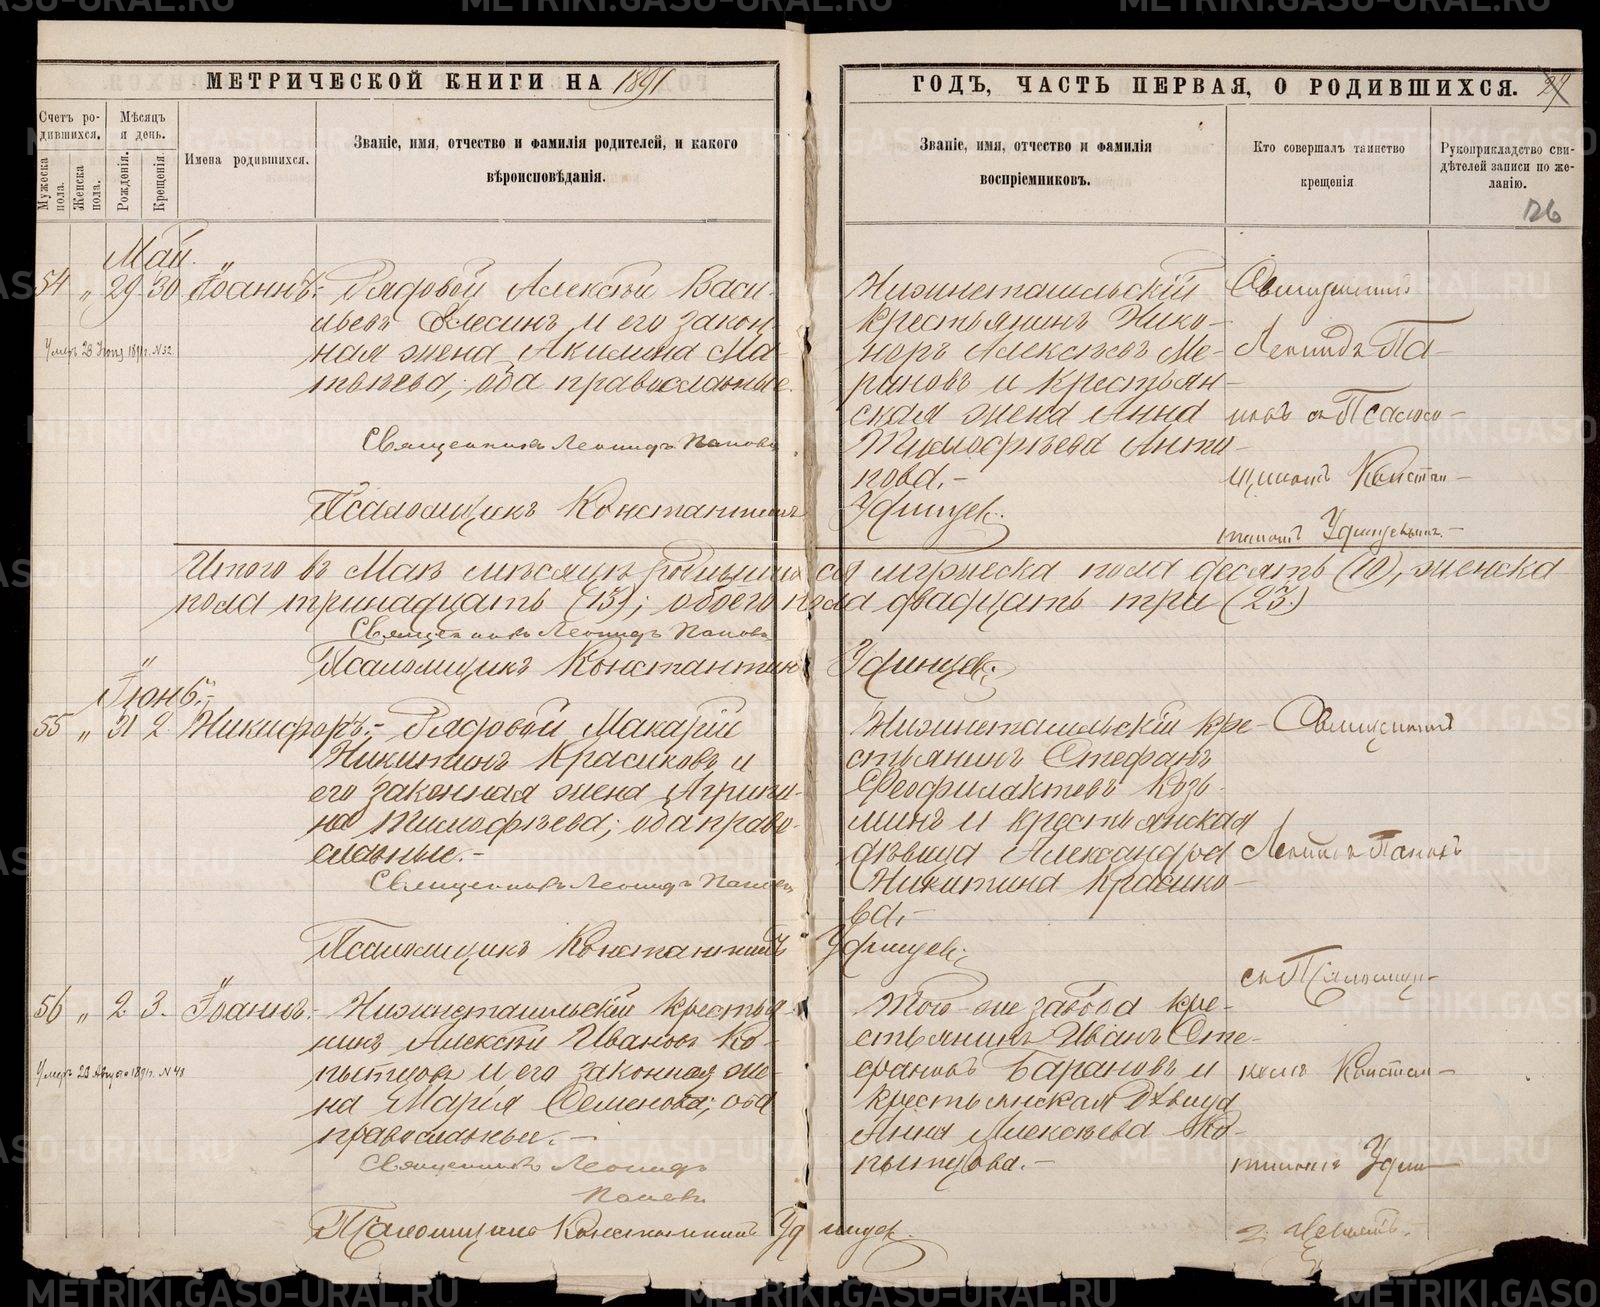 МЕТРИЧЕСКОЙ КНИГИ НА 1891
ГОДЪ, ЧАСТЬ ПЕРВАЯ, О РОДИВШИХСЯ.
Счетъ ро-
дившихся.
Мужеска пола.
Женска пола.
Мѣсяцъ
и день.
Рожденія.
Крещенія.
Имена родившихся.
Званіе, имя, отчество и фамилія родителей, и какого
вѣроисповѣданія.
Званіе, имя, отчество и фамилія
воспріемниковъ.
Кто совершалъ таинство
крещенія
Рукоприкладство сви-
дѣтелей записи по же-
ланію.
126
Май.
54 " 29 30 Іоаннъ.
Умеръ 23 1891г. №32
Рядовой Алексѣй Васи-
льевъ и его закон-
ная жена Акилина Ма-
твѣева; оба православные.
Священникъ Леонидъ Поповъ
Псаломщикъ Константинъ Удинцев.
Нижнетагильскій
крестьянинъ Нико-
норъ Алексѣевъ Ме-
риновъ и крестьян-
ская жена Анна
Тимофѣева Анти-
пова.-
Священникъ
Леонидъ По-
повъ съ Псалом-
щикомъ Констан-
тиномъ Удинцевымъ.-
Итого въ Маѣ мѣсяцѣ родившихся мужеска пола десять (10), женска
пола тринадцать (13); обоего пола двадцать три (23.)
Священникъ Леонидъ Поповъ
Псаломщикъ Константинъ Удинцев.
Іюнь.-
55 " 31 2. Никифоръ.-
Рядовой Макарій
Никитинъ Красиковъ и
его законная жена Агрипи-
на Тимофѣева; оба право-
славные.-
Священникъ Леонидъ Поповъ
Псаломщикъ Константинъ Удинцев.
Нижнетагильскій кре-
стьянинъ Стефанъ
Феофилактовъ Козь-
минъ и крестьянская
дѣвица Александра
Никитина Красико-
ва.-
Священникъ
Леонидъ Поповъ
съ Псаломщи-
комъ Констан-
тиномъ Удин-
56 " 2 3. Іоаннъ.-
Умеръ 23 Августа 1891г. №48
Нижнетагильскій крестья-
нинъ Алексѣй Ивановъ Ко-
пытовъ и его законная же-
на Марія Семенова; оба
православные.-
Священникъ Леонидъ
Поповъ
Псаломщикъ Константинъ Удинцев.
Того же завода кре-
стьянинъ Иванъ Сте-
фановъ Барановъ и
крестьянская дѣвица
Анна Алексѣева Ко-
пытова.-
METRIKI.GASO-URAL.RU